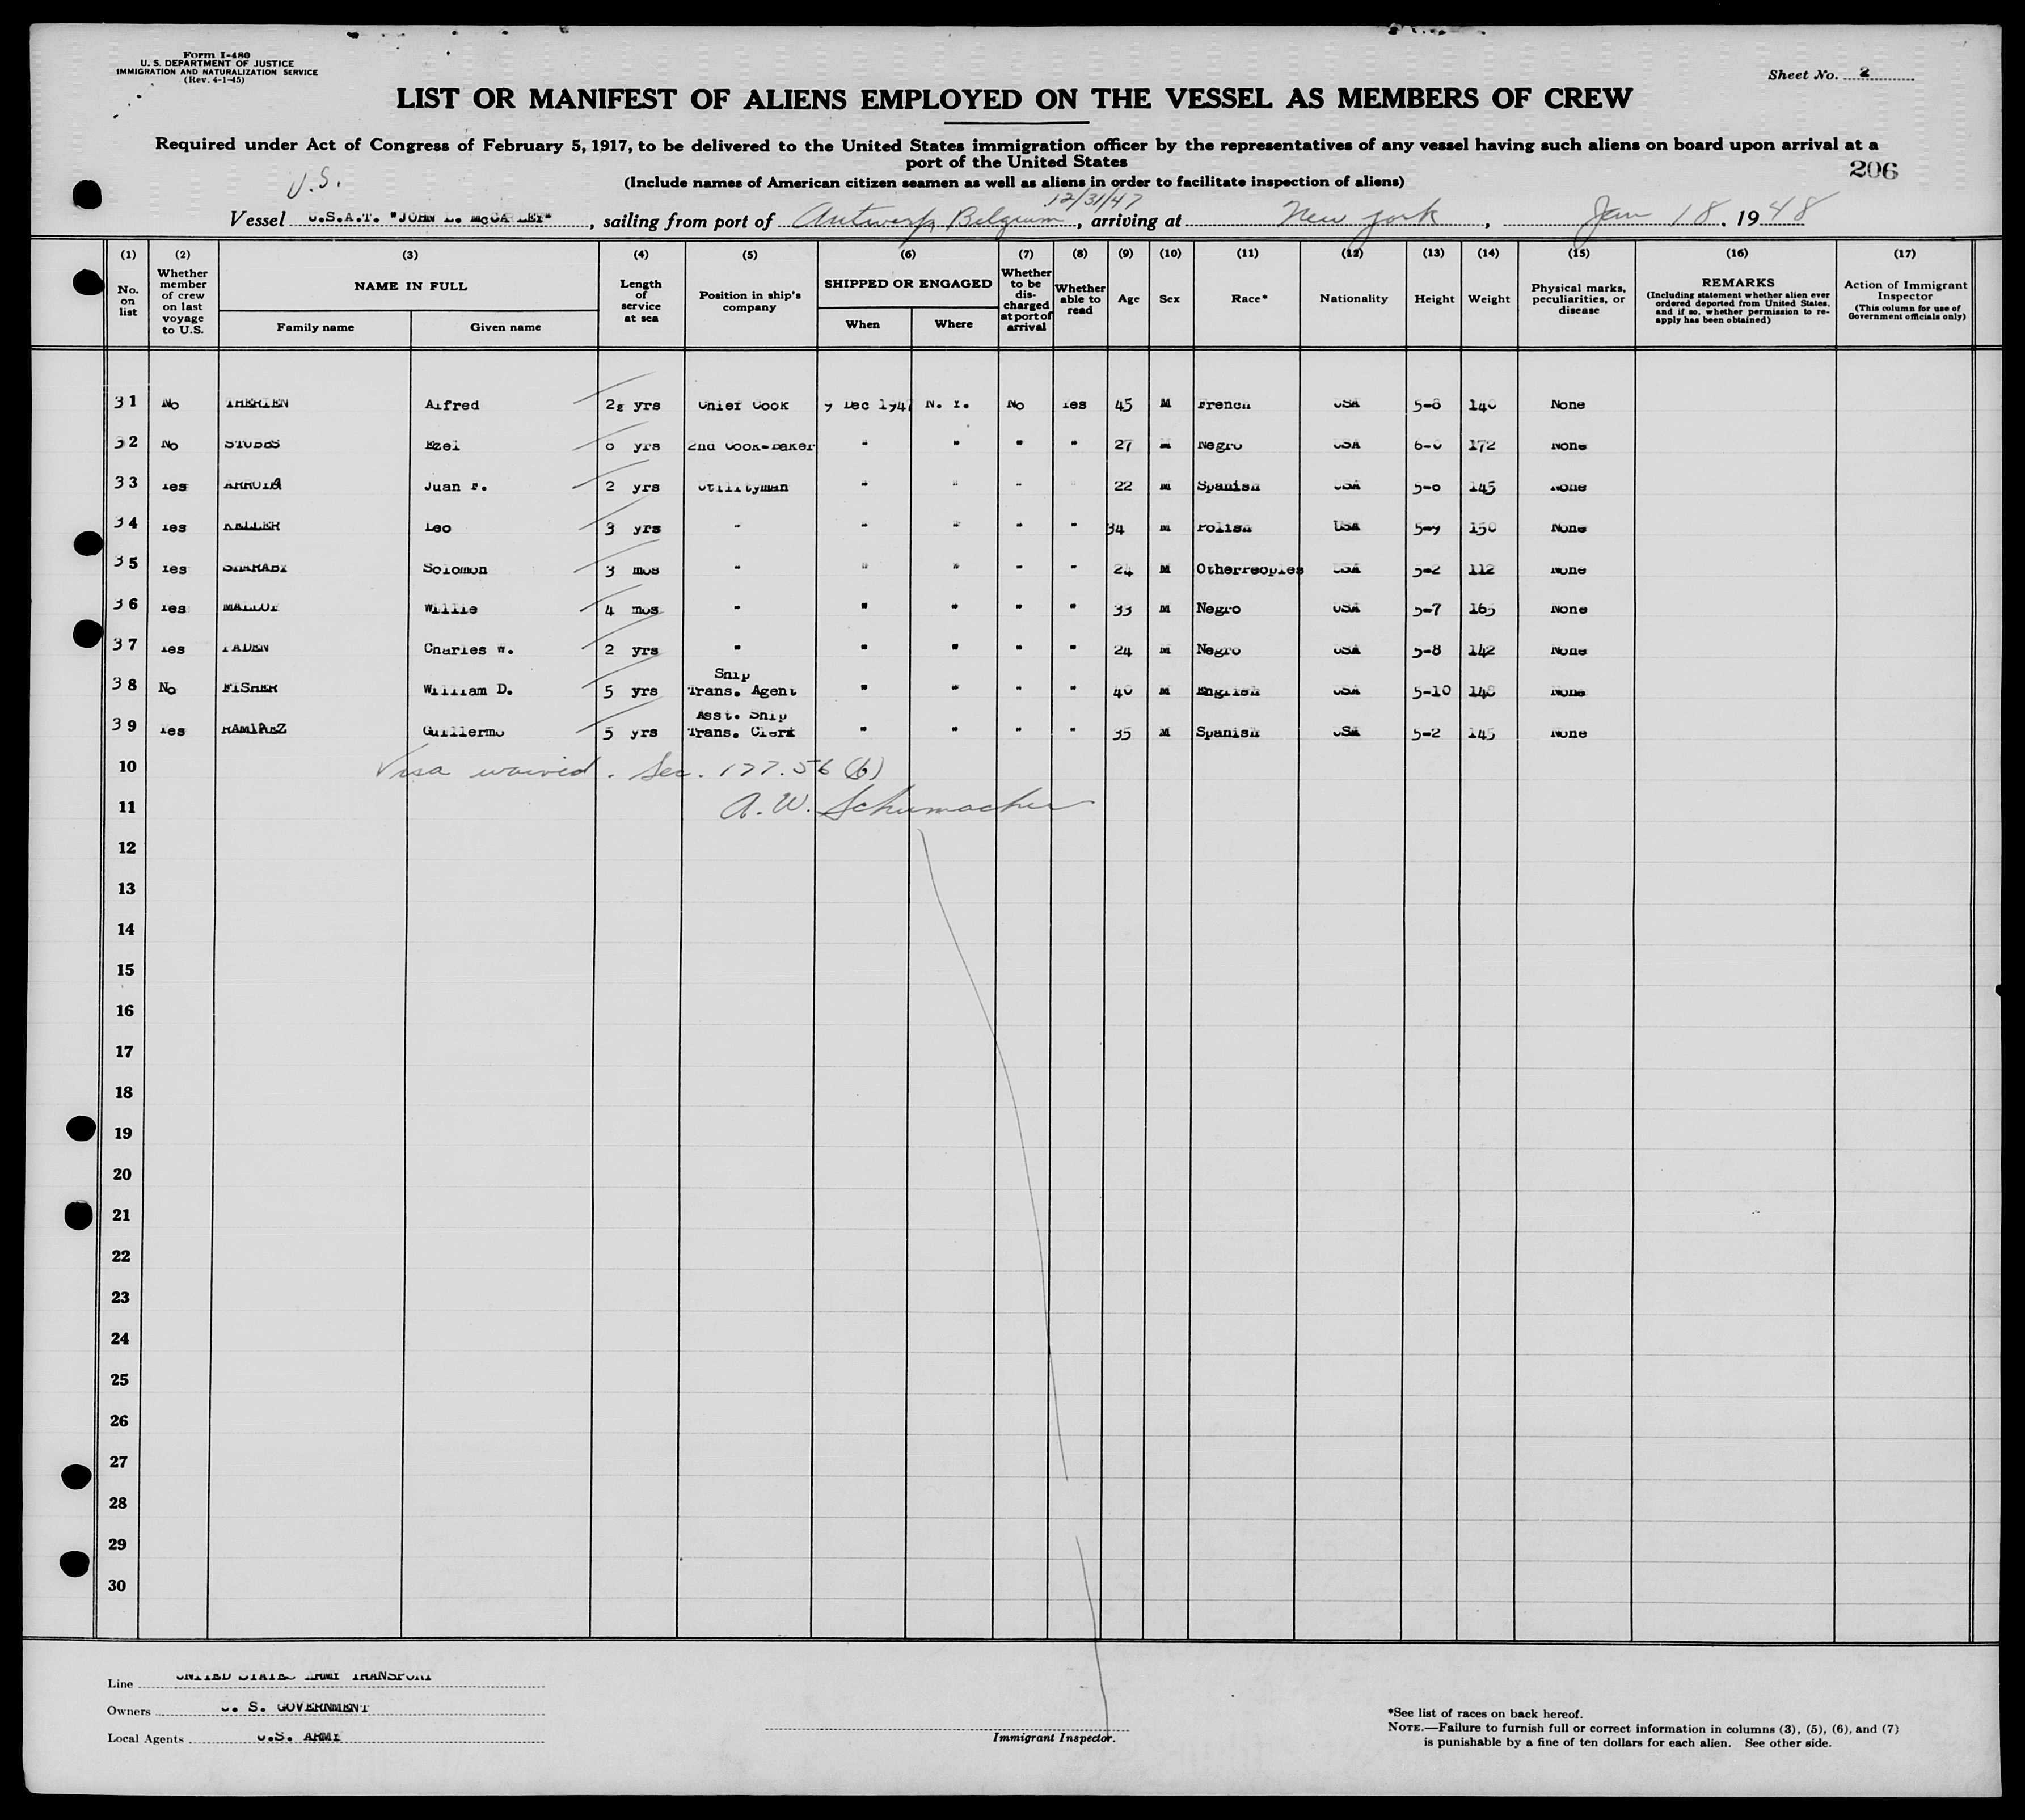 Form I-480
U. S. DEPARTMENT OF JUSTICE
IMMIGRATION AND NATURALIZATION SERVICE
(Rev. 4-1-45)
Sheet No. 2
LIST OR MANIFEST OF ALIENS EMPLOYED ON THE VESSEL AS MEMBERS OF CREW
Required under Act of Congress of February 5, 1917, to be delivered to the United States immigration officer by the representatives of any vessel having such aliens on board upon arrival at a
port of the United States
206
(Include names of American citizen seamen as well as aliens in order to facilitate inspection of aliens)
U.S.
12/31/47
Vessel U.S.A.T. "JOHN L. McCARLEY", sailing from port of Antwerp, Belgium, arriving at New York, Jan 18, 1948
(1) No. on list
(2) Whether member of crew on last voyage to U.S.
(3) NAME IN FULL Family name Given name
(4) Length of service at sea
(5) Position in ship's company
(6) SHIPPED OR ENGAGED When Where
(7) Whether to be discharged at port of arrival
(8) Whether able to read
(9) Age
(10) Sex
(11) Race*
(12) Nationality
(13) Height
(14) Weight
(15) Physical marks, peculiarities, or disease
(16) REMARKS (Including statement whether alien ever ordered deported from United States, and if so, whether permission to re-apply has been obtained)
(17) Action of Immigrant Inspector (This column for use of Government officials only)
31 No THERIEN Alfred yrs Chief Cook 9 Dec 1947 N. Y. No Yes 45 M French USA 5-8 140 None
32 No STUBBS Ezel yrs 2nd Cook-Baker " " " " 27 M Negro USA 6-0 172 None
33 Yes ARROYA Juan F. 2 yrs Utilityman " " " " 22 M Spanish USA 145 None
34 Yes KELLER Leo 3 yrs " " " " " 34 M Polish USA 5-9 150 None
35 Yes SHARABY Solomon 3 mos " " " " " 24 M Otherpeoples USA 5-2 112 None
36 Yes MALLOY Willie 4 mos " " " " " 33 M Negro USA 5-7 165 None
37 Yes FADEN Charles W. 2 yrs " " " " " 24 M Negro USA 5-8 142 None
38 No FISHER William D. 5 yrs Ship Trans. Agent " " " " 40 M English USA 5-10 148 None
39 Yes RAMIREZ Guillermo 5 yrs Asst. Ship Trans. Clerk " " " " 35 M Spanish USA 5-2 145 None
10 Visa waived. Sec. 177.56 (b)
11 A. W. Schumacher
12
13
14
15
16
17
18
19
20
21
22
23
24
25
26
27
28
29
30
Line UNITED STATES ARMY TRANSPORT
Owners U. S. GOVERNMENT
Local Agents U.S. ARMY
Immigrant Inspector.
*See list of races on back hereof.
NOTE.—Failure to furnish full or correct information in columns (3), (5), (6), and (7)
is punishable by a fine of ten dollars for each alien. See other side.